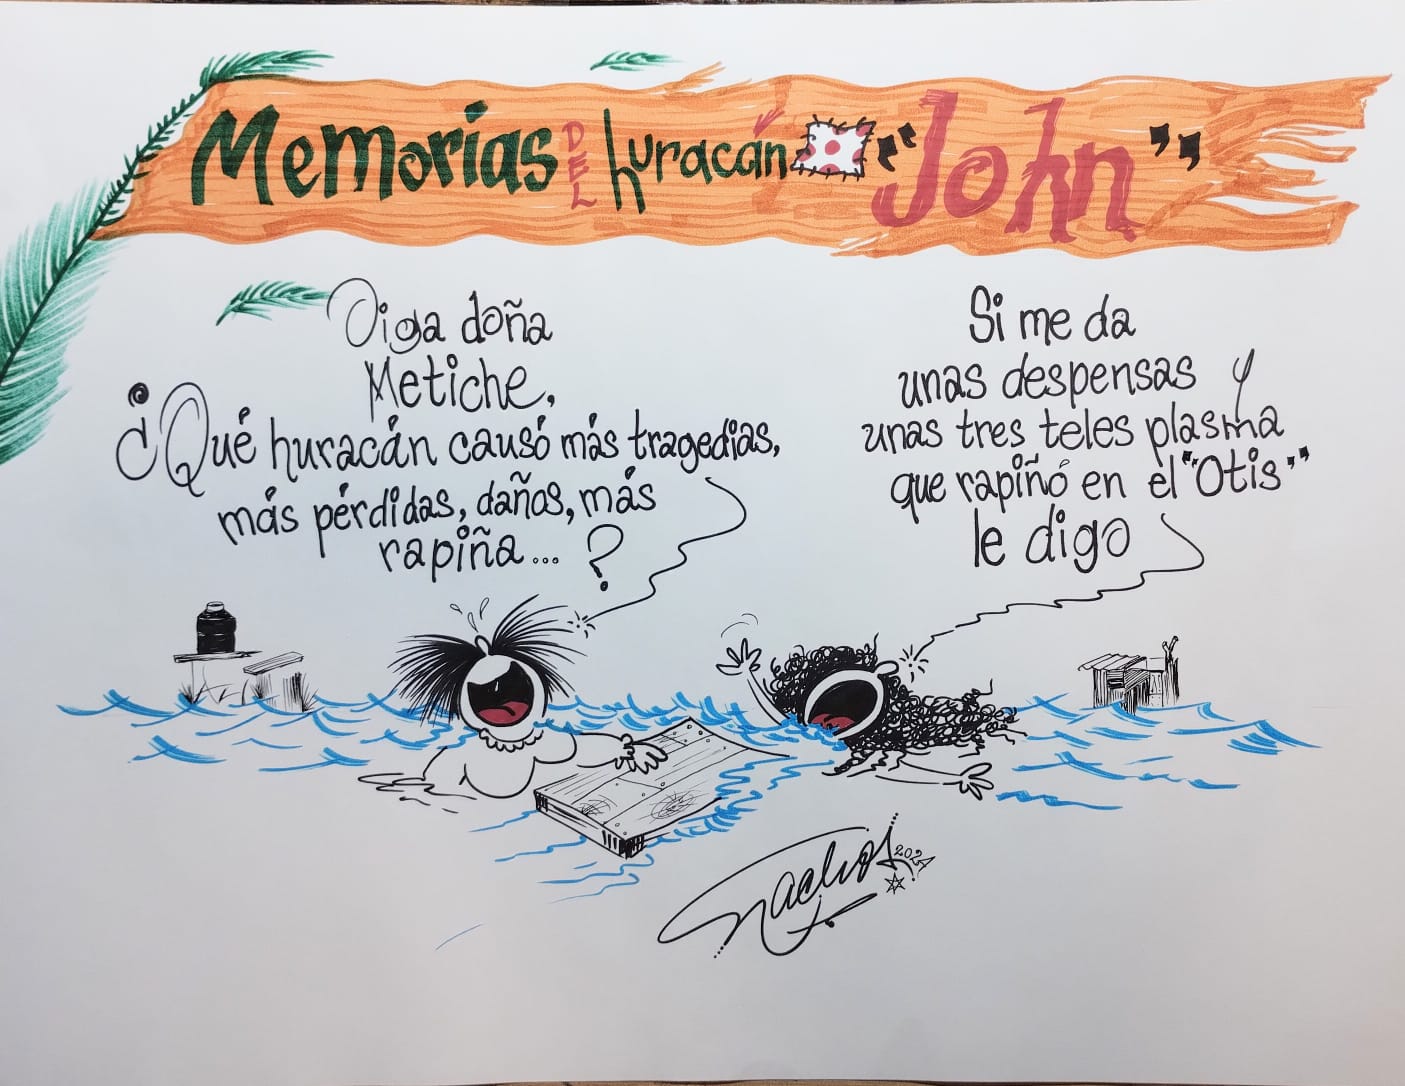 Memorias DEL huracán "John"
Oiga doña
Metiche,
¿Qué huracán causó más tragedias,
más pérdidas, daños, más
rapiña...?
Si me da
unas despensas y
unas tres teles plasma
que rapiñó en el "Otis"
le digo
Nachos 2024